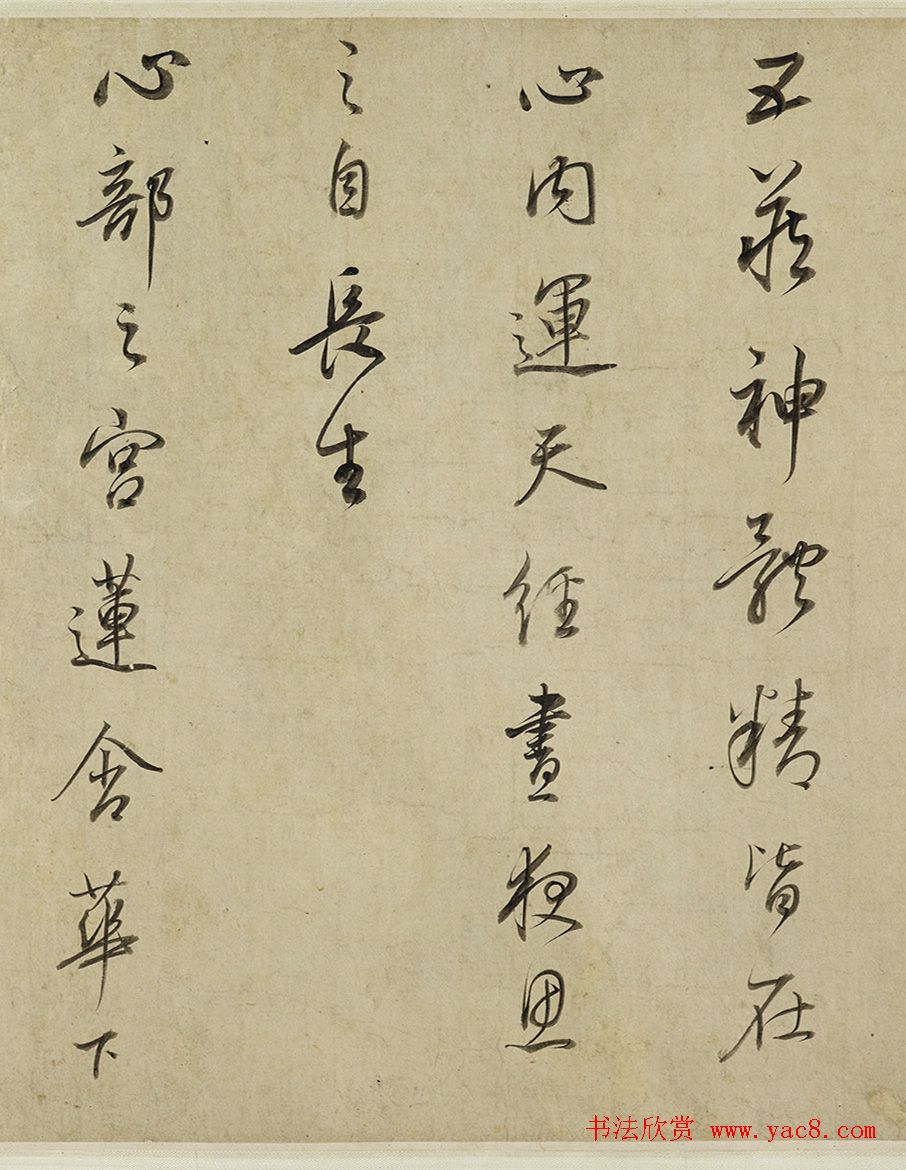 五藏神體精皆在
心內運天經晝夜思
之自長生
心部之宮蓮含華下
书法欣赏 www.yac8.com